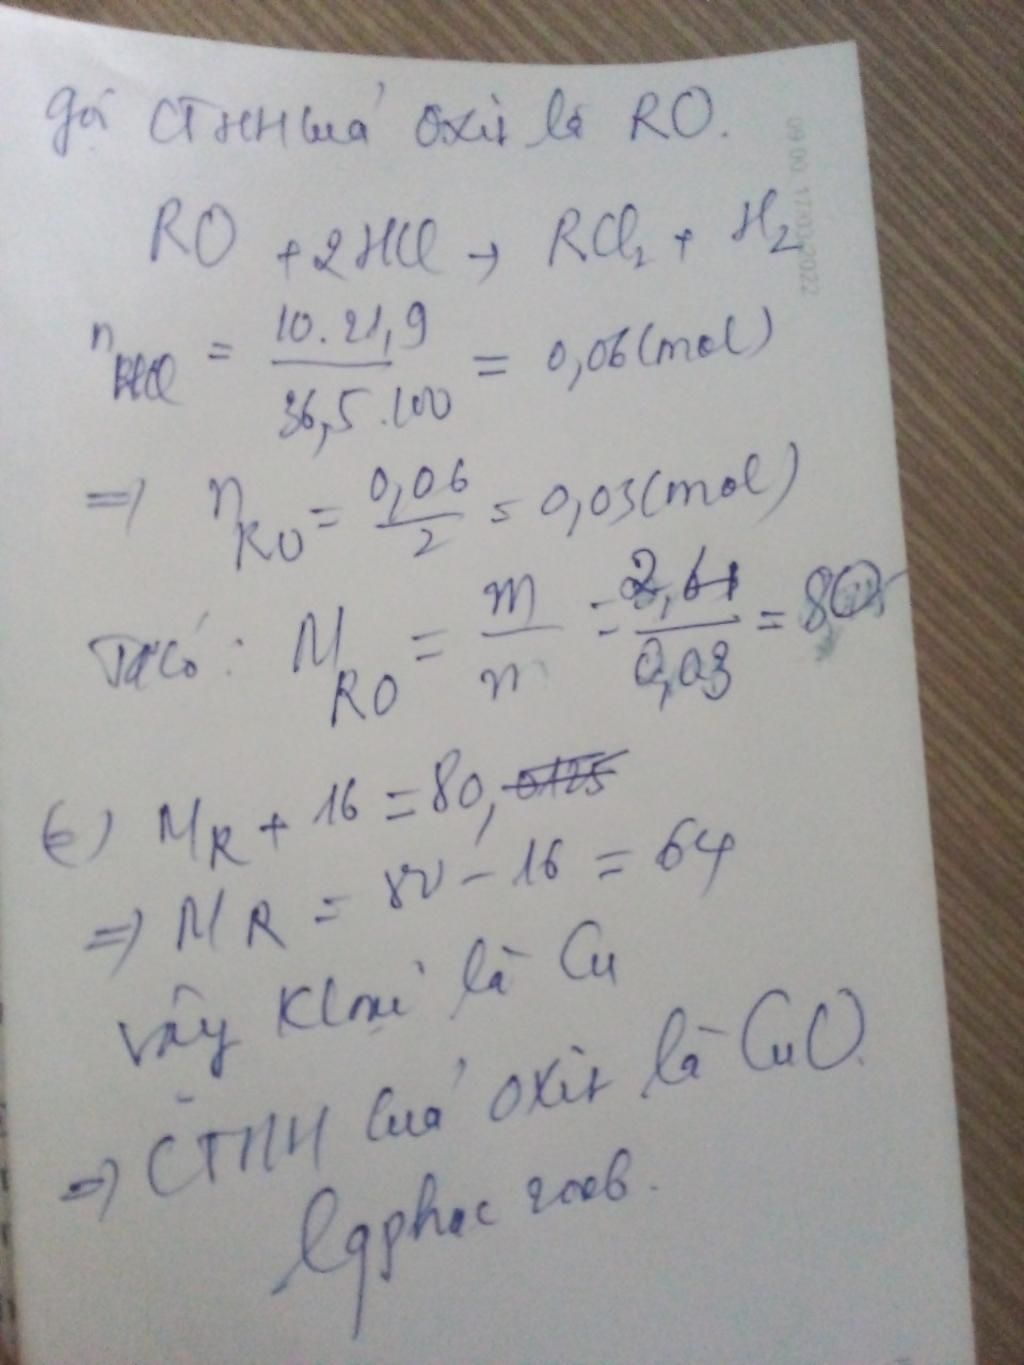 Gọi CTHH của oxit là RO.
RO + 2HCl → RCl₂ + H₂
n_HCl = 10.21,9 / 36,5.100 = 0,06 (mol)
=> n_RO = 0,06 / 2 = 0,03 (mol)
Ta có: M_RO = m / n = 2,41 / 0,03 = 80
(=) M_R + 16 = 80,
=> M_R = 80 - 16 = 64
Vậy Kloại là Cu
=> CTHH của oxit là CuO.
lqphuc 2006.
09:00 17/03/2022